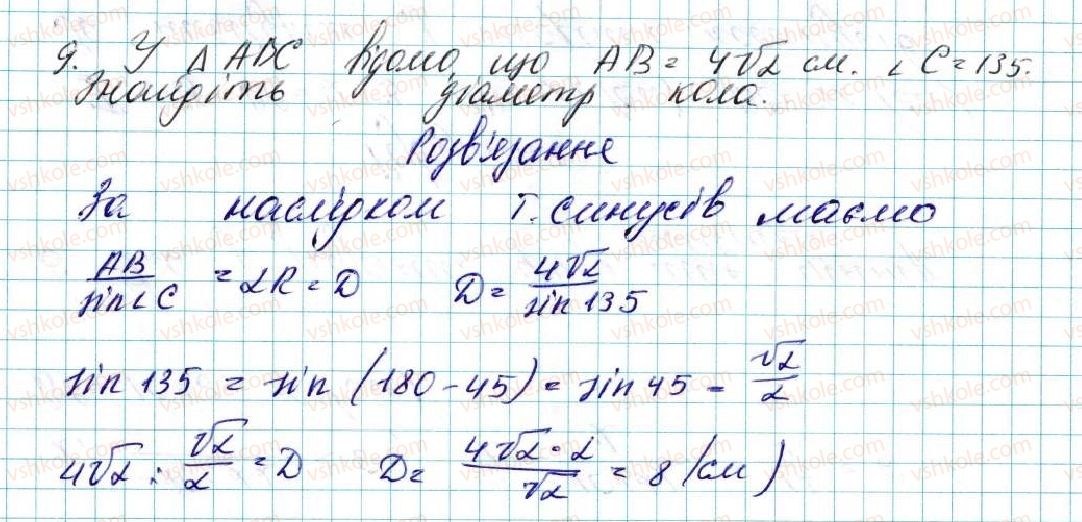 9. У △ABC відомо, що AB = 4√2 см. ∠C = 135.
Знайдіть діаметр кола.
Розв'язання
За наслідком т. синусів маємо
AB/sin∠C = 2R = D    D = 4√2/sin 135
sin 135 = sin (180 - 45) = sin 45 = √2/2
4√2 : √2/2 = D    D = 4√2 · 2/√2 = 8 (см)
vshkole.com